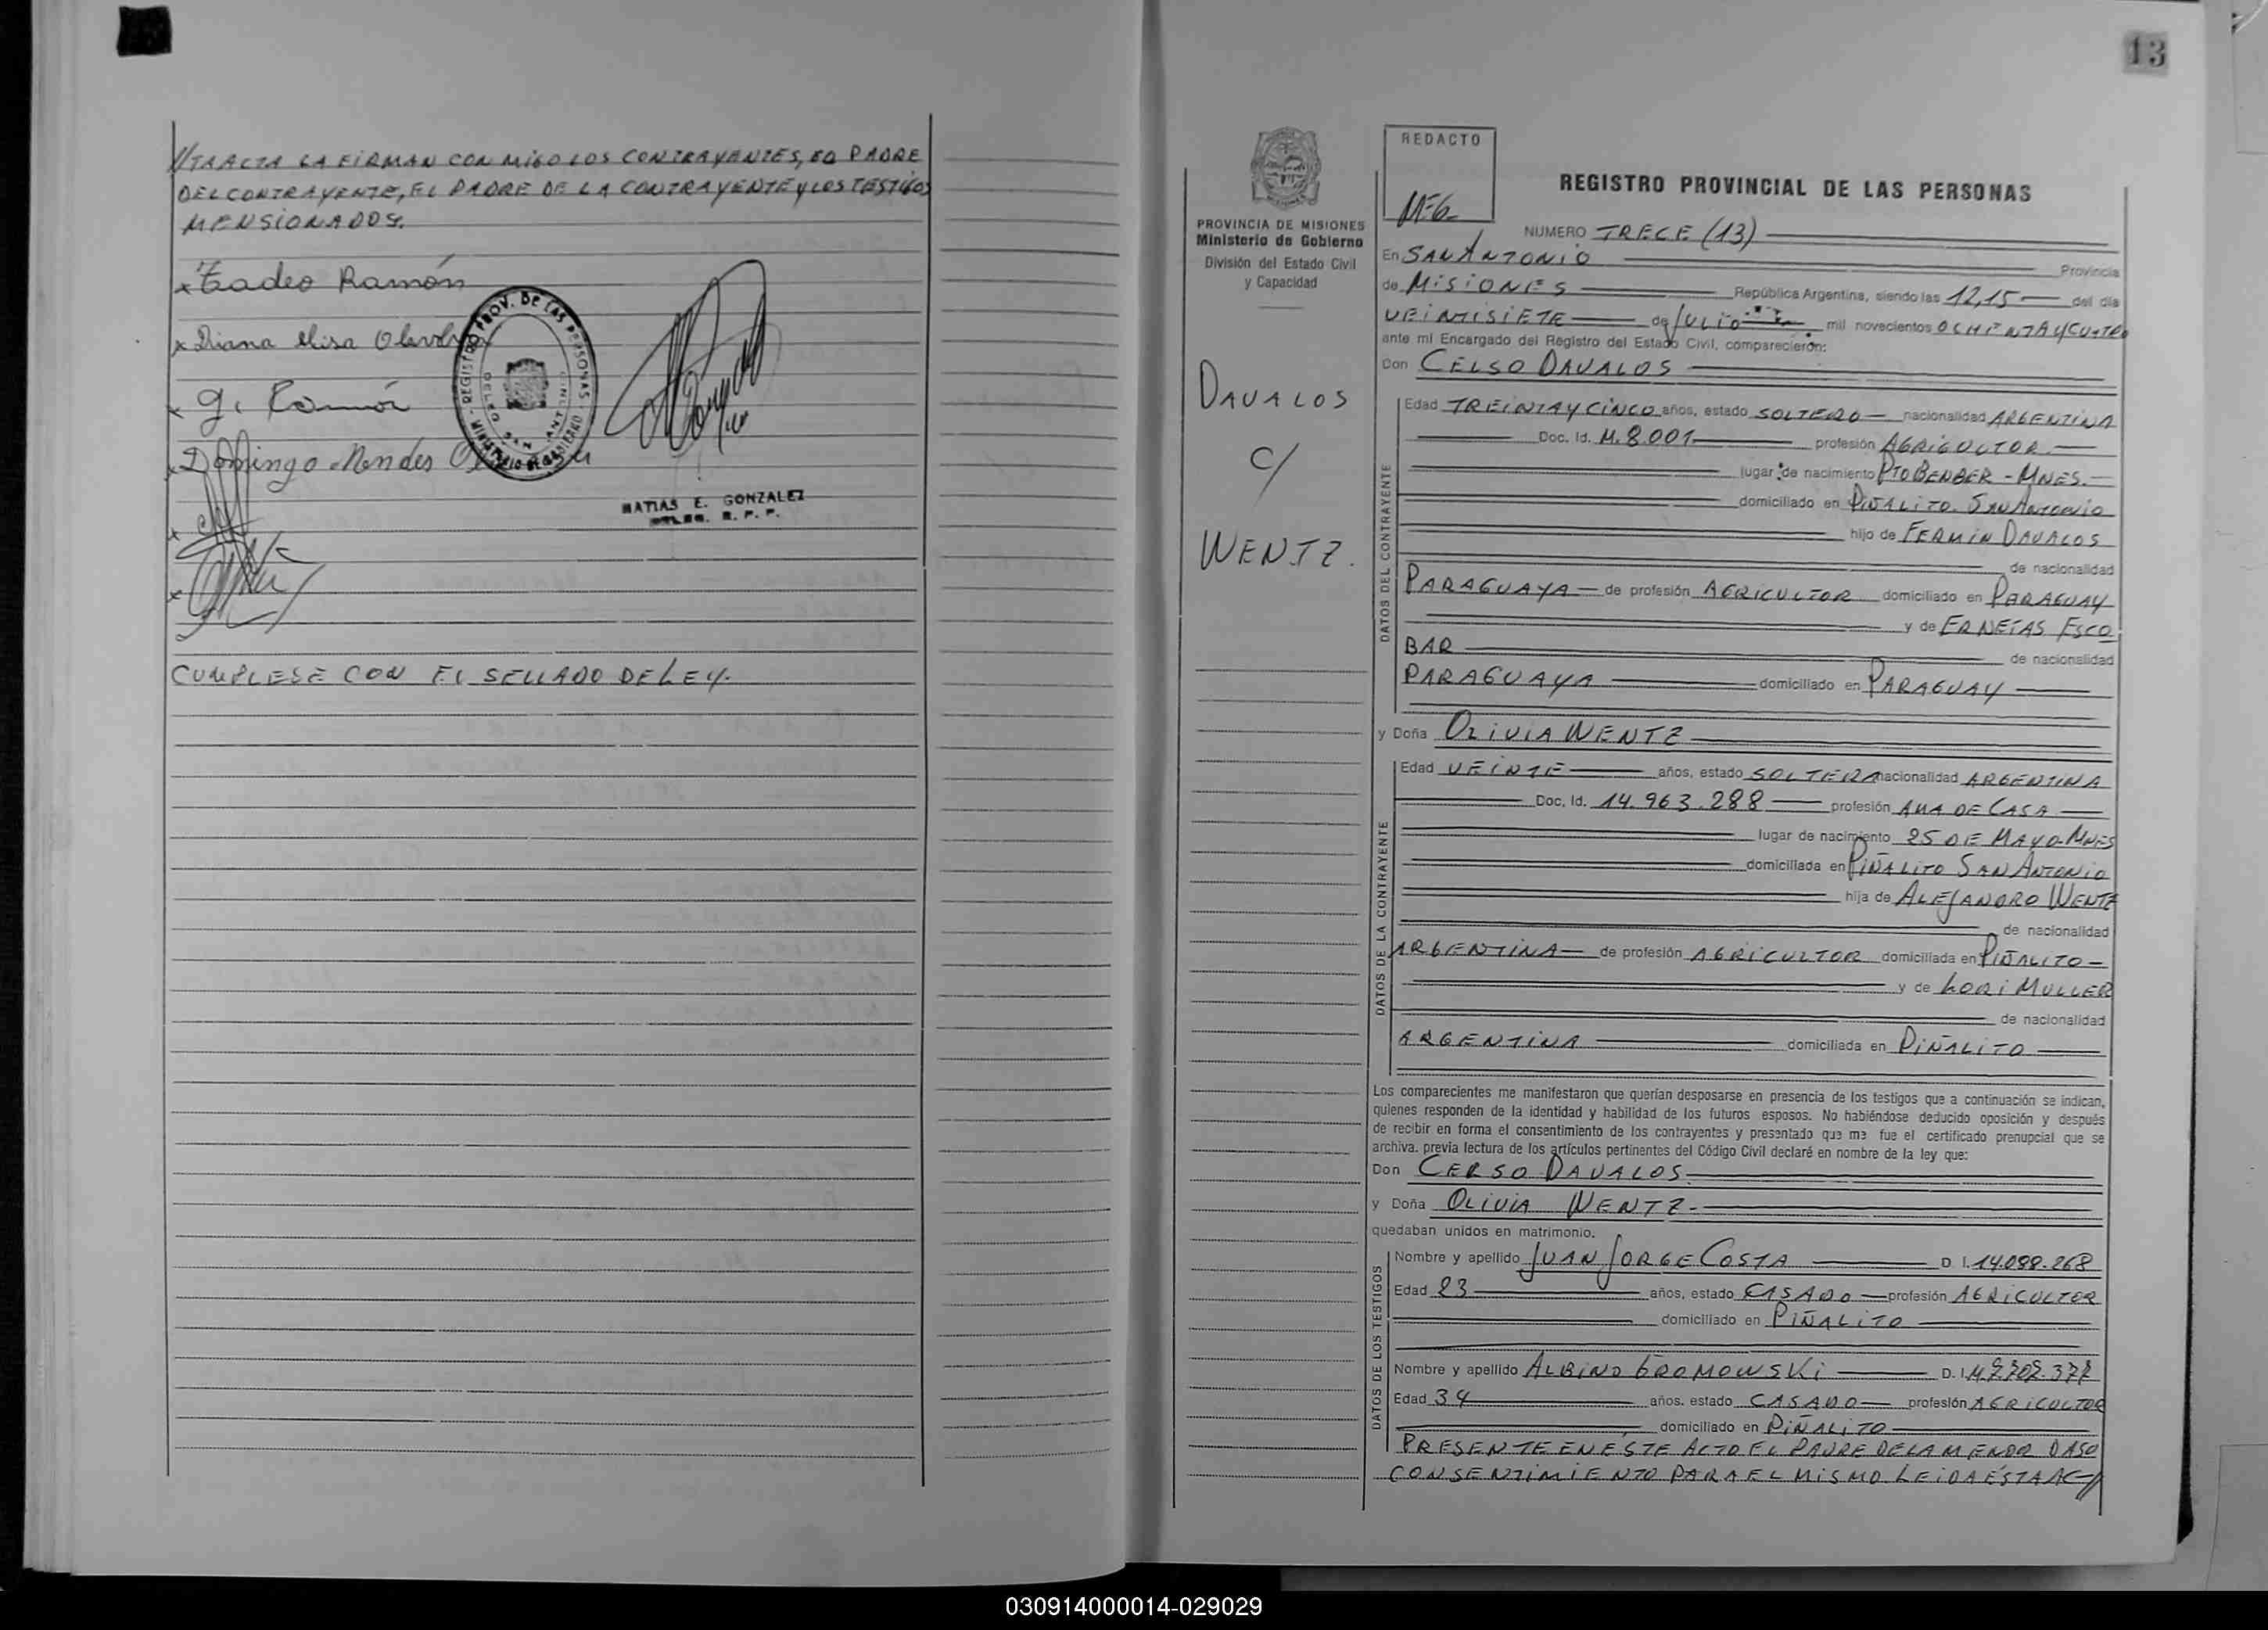 //TA ACTA LA FIRMAN CON MIGO LOS CONTRAYENTES, EL PADRE
DEL CONTRAYENTE, EL PADRE DE LA CONTRAYENTE Y LOS TESTIGOS
MENSIONADOS.
x Tadeo Ramón
x Diana Elisa
x g. Ramón
x Domingo Mendes
REGISTRO PROV. DE LAS PERSONAS
MINISTERIO DE GOBIERNO
MATIAS E. GONZALEZ
DELEG. R. P. P.
x
x
CUMPLESE CON EL SELLADO DE LEY.
13
REDACTO
M-G
PROVINCIA DE MISIONES
Ministerio de Gobierno
División del Estado Civil
y Capacidad
DAVALOS
C/
WENTZ.
REGISTRO PROVINCIAL DE LAS PERSONAS
NUMERO TRECE (13)
En SAN ANTONIO Provincia
de MISIONES República Argentina, siendo las 12,15 del día
VEINTISIETE de JULIO mil novecientos OCHENTA Y CUATRO
ante mí Encargado del Registro del Estado Civil, comparecierón:
Don CELSO DAVALOS
DATOS DEL CONTRAYENTE
Edad TREINTA Y CINCO años, estado SOLTERO nacionalidad ARGENTINA
Doc. Id. M. 8.001 profesión AGRICULTOR
lugar de nacimiento PTO BENBER - MNES.
domiciliado en PIÑALITO. SAN ANTONIO
hijo de FERMIN DAVALOS
de nacionalidad
PARAGUAYA de profesión AGRICULTOR domiciliado en PARAGUAY
y de ERNEIAS ESCO
BAR
de nacionalidad
PARAGUAYA domiciliado en PARAGUAY
y Doña OLIVIA WENTZ
DATOS DE LA CONTRAYENTE
Edad VEINTE años, estado SOLTERA nacionalidad ARGENTINA
Doc. Id. 14.963.288 profesión AMA DE CASA
lugar de nacimiento 25 DE MAYO-MNES
domiciliada en PIÑALITO SAN ANTONIO
hija de ALEJANDRO WENTZ
de nacionalidad
ARGENTINA de profesión AGRICULTOR domiciliada en PIÑALITO
y de LORI MULLER
de nacionalidad
ARGENTINA domiciliada en PIÑALITO
Los comparecientes me manifestaron que querían desposarse en presencia de los testigos que a continuación se indican,
quienes responden de la identidad y habilidad de los futuros esposos. No habiéndose deducido oposición y después
de recibir en forma el consentimiento de los contrayentes y presentado que me fue el certificado prenupcial que se
archiva. previa lectura de los artículos pertinentes del Código Civil declaré en nombre de la ley que:
Don CELSO DAVALOS
y Doña OLIVIA WENTZ
quedaban unidos en matrimonio.
DATOS DE LOS TESTIGOS
Nombre y apellido JUAN JORGE COSTA D. I. 14.088.268
Edad 23 años, estado CASADO profesión AGRICULTOR
domiciliado en PIÑALITO
Nombre y apellido ALBINO GROMOWSKI D. I.
Edad 34 años. estado CASADO profesión AGRICULTOR
domiciliado en PIÑALITO
PRESENTE EN ÉSTE ACTO EL PADRE DE LA MENOR DA SU
CONSENTIMIENTO PARA EL MISMO. LEIDA ÉSTA AC//
030914000014-029029